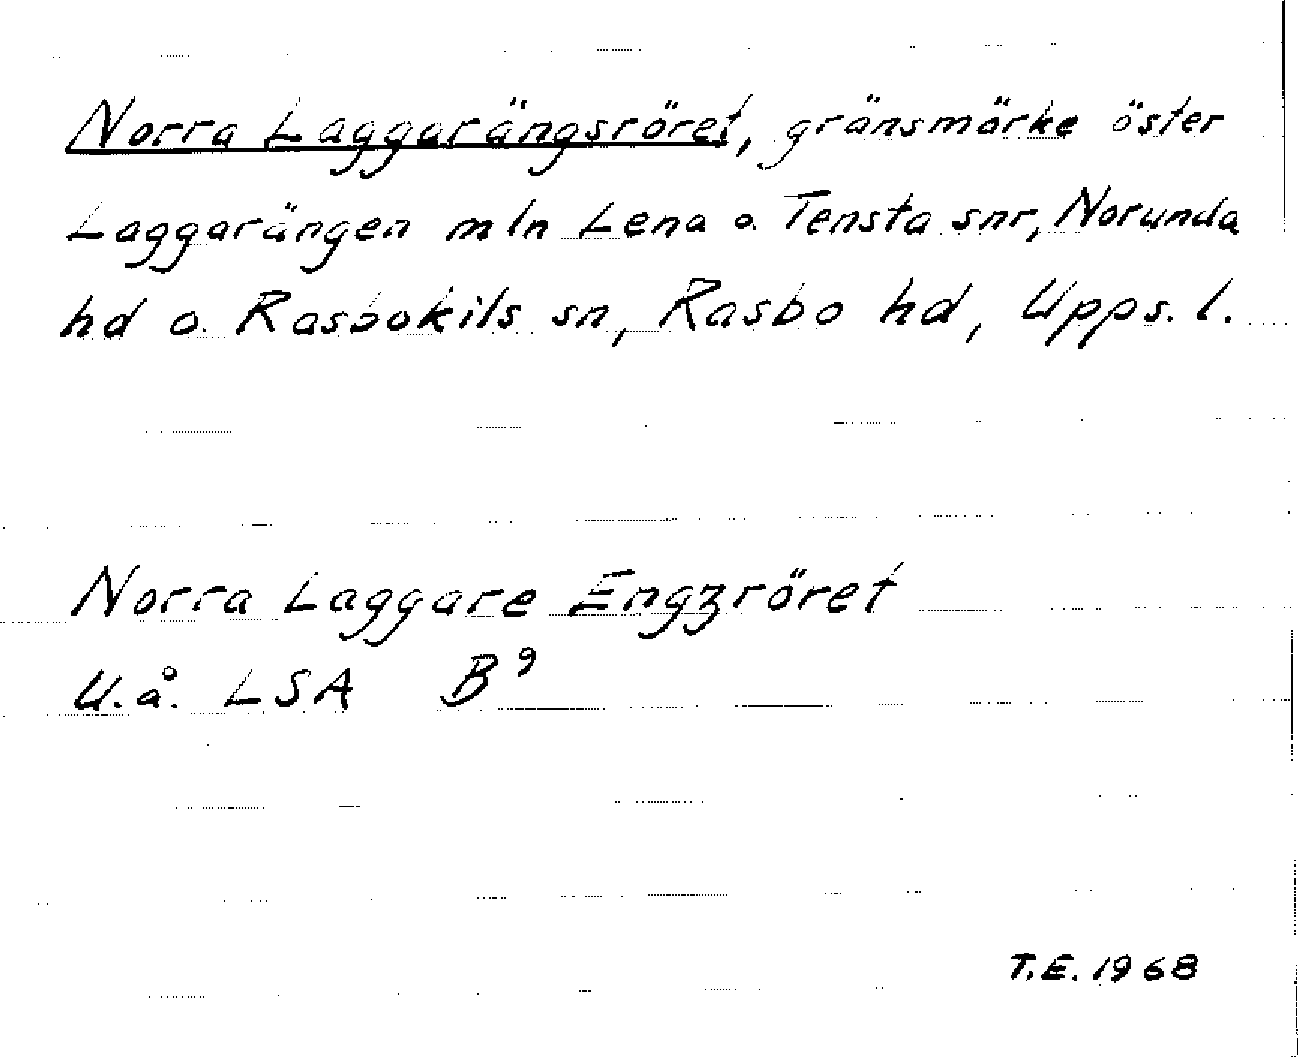 Norra Laggarängsröret, gränsmärke öster
Laggarängen mln Lena o. Tensta snr, Norunda
hd o. Rasbokils sn, Rasbo hd, Upps. l.
Norra Laggare Engzröret
U.å. LSA B⁹
T.E. 1968